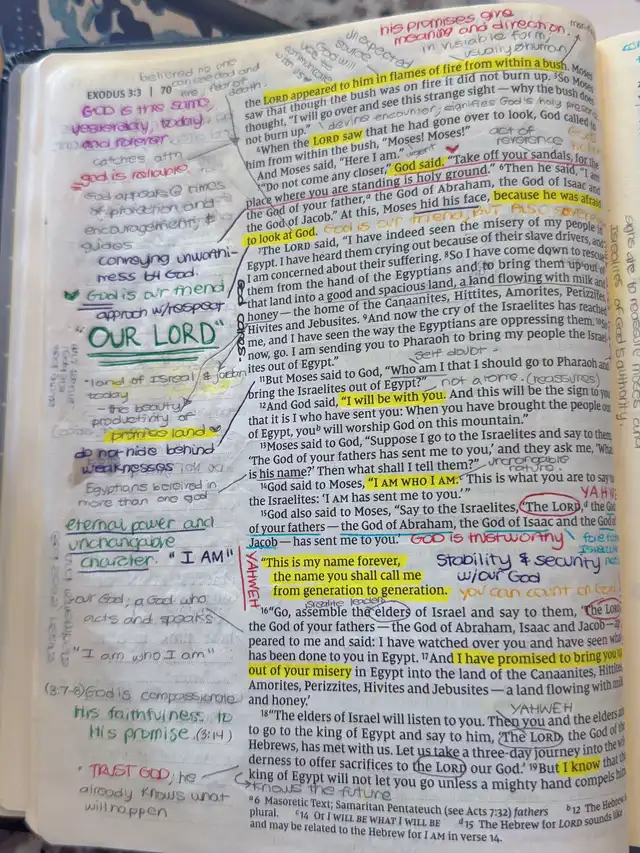 his promises give
meaning and direction.
unexpected
source
in visiable form,
usually human
EXODUS 3:3 | 70
believed no one
death.
GOD is the same,
yesterday, today,
and forever
catches attn
god is reliable
God appears @ times
of protection and
encouragement &
guides
conveying unworthi-
ness b4 God.
God is our friend
approch w/respect
"OUR LORD"
God cares.
land of Israel & jordan
today
- the beauty
productivity of
promise land
do not hide behind
weaknesses
Egyptians believed in
more than one god
eternal power and
unchangable
charcter. "I AM"
our God; a God who
acts and speaks
"I am who I am"
(3:7-8) God is compassionate
His faithfulness to
His promise. (3:14)
TRUST GOD; he
already knows what
will happen
the LORD appeared to him in flames of fire from within a bush. Moses
saw that though the bush was on fire it did not burn up. 3So Moses
thought, "I will go over and see this strange sight — why the bush does
not burn up."
devine encounter, signifies God's holy presence
4When the LORD saw that he had gone over to look, God called to
him from within the bush, "Moses! Moses!"
act of
reverence
And Moses said, "Here I am."
5"Do not come any closer," God said. "Take off your sandals, for the
place where you are standing is holy ground." 6Then he said, "I am
the God of your father,a the God of Abraham, the God of Isaac and
the God of Jacob." At this, Moses hid his face, because he was afraid
to look at God.
God is our friend, but Also
7The LORD said, "I have indeed seen the misery of my people in
Egypt. I have heard them crying out because of their slave drivers, and
I am concerned about their suffering. 8So I have come down to rescue
them from the hand of the Egyptians and to bring them up out of
that land into a good and spacious land, a land flowing with milk and
honey — the home of the Canaanites, Hittites, Amorites, Perizzites,
Hivites and Jebusites. 9And now the cry of the Israelites has reached
me, and I have seen the way the Egyptians are oppressing them. 10So
now, go. I am sending you to Pharaoh to bring my people the Israel-
ites out of Egypt."
self doubt
11But Moses said to God, "Who am I that I should go to Pharaoh and
bring the Israelites out of Egypt?"
not alone. (reassures)
12And God said, "I will be with you. And this will be the sign to you
that it is I who have sent you: When you have brought the people out
of Egypt, youb will worship God on this mountain."
13Moses said to God, "Suppose I go to the Israelites and say to them,
'The God of your fathers has sent me to you,' and they ask me, 'What
is his name?' Then what shall I tell them?"
unchangable
nature.
14God said to Moses, "I AM WHO I AM.c This is what you are to say to
the Israelites: 'I AM has sent me to you.'"
YAHWEH
15God also said to Moses, "Say to the Israelites, 'The LORD,d the God
of your fathers — the God of Abraham, the God of Isaac and the God of
Jacob — has sent me to you.'
GOD is trustworthy
YAHWEH
"This is my name forever,
the name you shall call me
from generation to generation.
Stability & security
w/our God
you can count on God!
israelite leaders
16"Go, assemble the elders of Israel and say to them, 'The LORD,
the God of your fathers — the God of Abraham, Isaac and Jacob — ap-
peared to me and said: I have watched over you and have seen what
has been done to you in Egypt. 17And I have promised to bring you up
out of your misery in Egypt into the land of the Canaanites, Hittites,
Amorites, Perizzites, Hivites and Jebusites — a land flowing with milk
and honey.'
YAHWEH
18"The elders of Israel will listen to you. Then you and the elders are
to go to the king of Egypt and say to him, 'The LORD, the God of the
Hebrews, has met with us. Let us take a three-day journey into the wil-
derness to offer sacrifices to the LORD our God.' 19But I know that the
king of Egypt will not let you go unless a mighty hand compels him
knows the future
a6 Masoretic Text; Samaritan Pentateuch (see Acts 7:32) fathers b12 The Hebrew
plural. c14 Or I WILL BE WHAT I WILL BE d15 The Hebrew for LORD sounds like
and may be related to the Hebrew for I AM in verse 14.